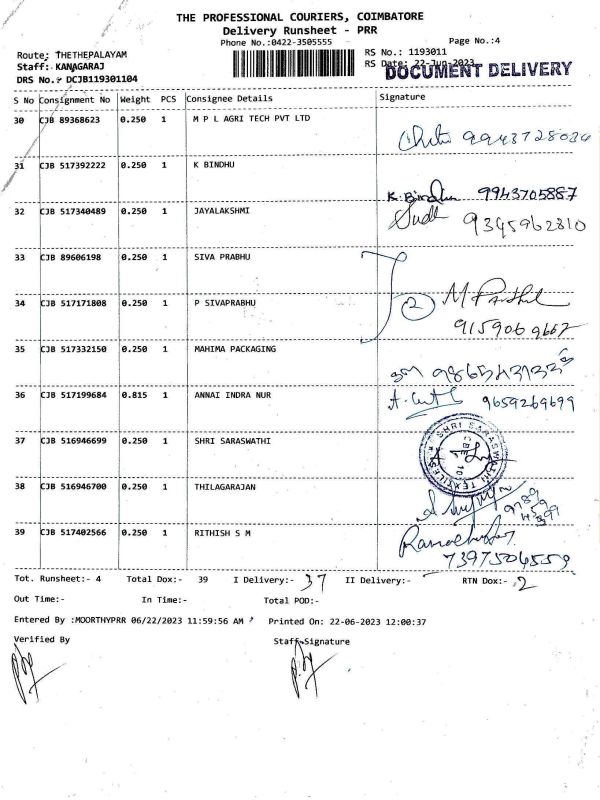 THE PROFESSIONAL COURIERS, COIMBATORE
Delivery Runsheet - PRR
Phone No.:0422-3505555
Page No.:4
Route: THETHEPALAYAM
RS No.: 1193011
Staff: KANAGARAJ
RS Date: 22-Jun-2023
DRS No.: DCJB119301104
DOCUMENT DELIVERY
S No Consignment No Weight PCS Consignee Details Signature
30 CJB 89368623 0.250 1 M P L AGRI TECH PVT LTD
31 CJB 517392222 0.250 1 K BINDHU
K. Bindhu 9943705887
32 CJB 517340489 0.250 1 JAYALAKSHMI
9345962810
33 CJB 89606198 0.250 1 SIVA PRABHU
2
34 CJB 517171808 0.250 1 P SIVAPRABHU
35 CJB 517332150 0.250 1 MAHIMA PACKAGING
36 CJB 517199684 0.815 1 ANNAI INDRA NUR
9659269699
37 CJB 516946699 0.250 1 SHRI SARASWATHI
SHRI SARASWATHI TEXTILES
38 CJB 516946700 0.250 1 THILAGARAJAN
39 CJB 517402566 0.250 1 RITHISH S M
7397504559
Tot. Runsheet:- 4 Total Dox:- 39 I Delivery:- 37 II Delivery:- RTN Dox:- 2
Out Time:- In Time:- Total POD:-
Entered By :MOORTHYPRR 06/22/2023 11:59:56 AM Printed On: 22-06-2023 12:00:37
Verified By Staff Signature